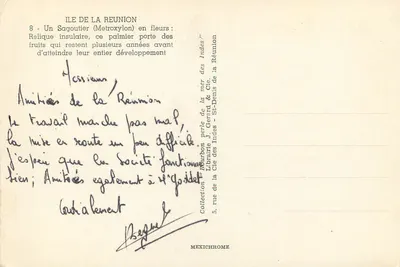 ILE DE LA REUNION
8 - Un Sagoutier (Metroxylon) en fleurs :
Relique insulaire, ce palmier porte des
fruits qui restent plusieurs années avant
d'atteindre leur entier développement
Monsieur,
Amitiés de la Réunion
le travail marche pas mal,
la mise en route un peu difficile.
J'espère que la société fonctionne
bien ; Amitiés également à Mr
Cordialement
Collection "Réunion perle de la mer des Indes"
Librairie J. Gérard & Cie
5, rue de la Cie des Indes - St-Denis de la Réunion
MEXICHROME